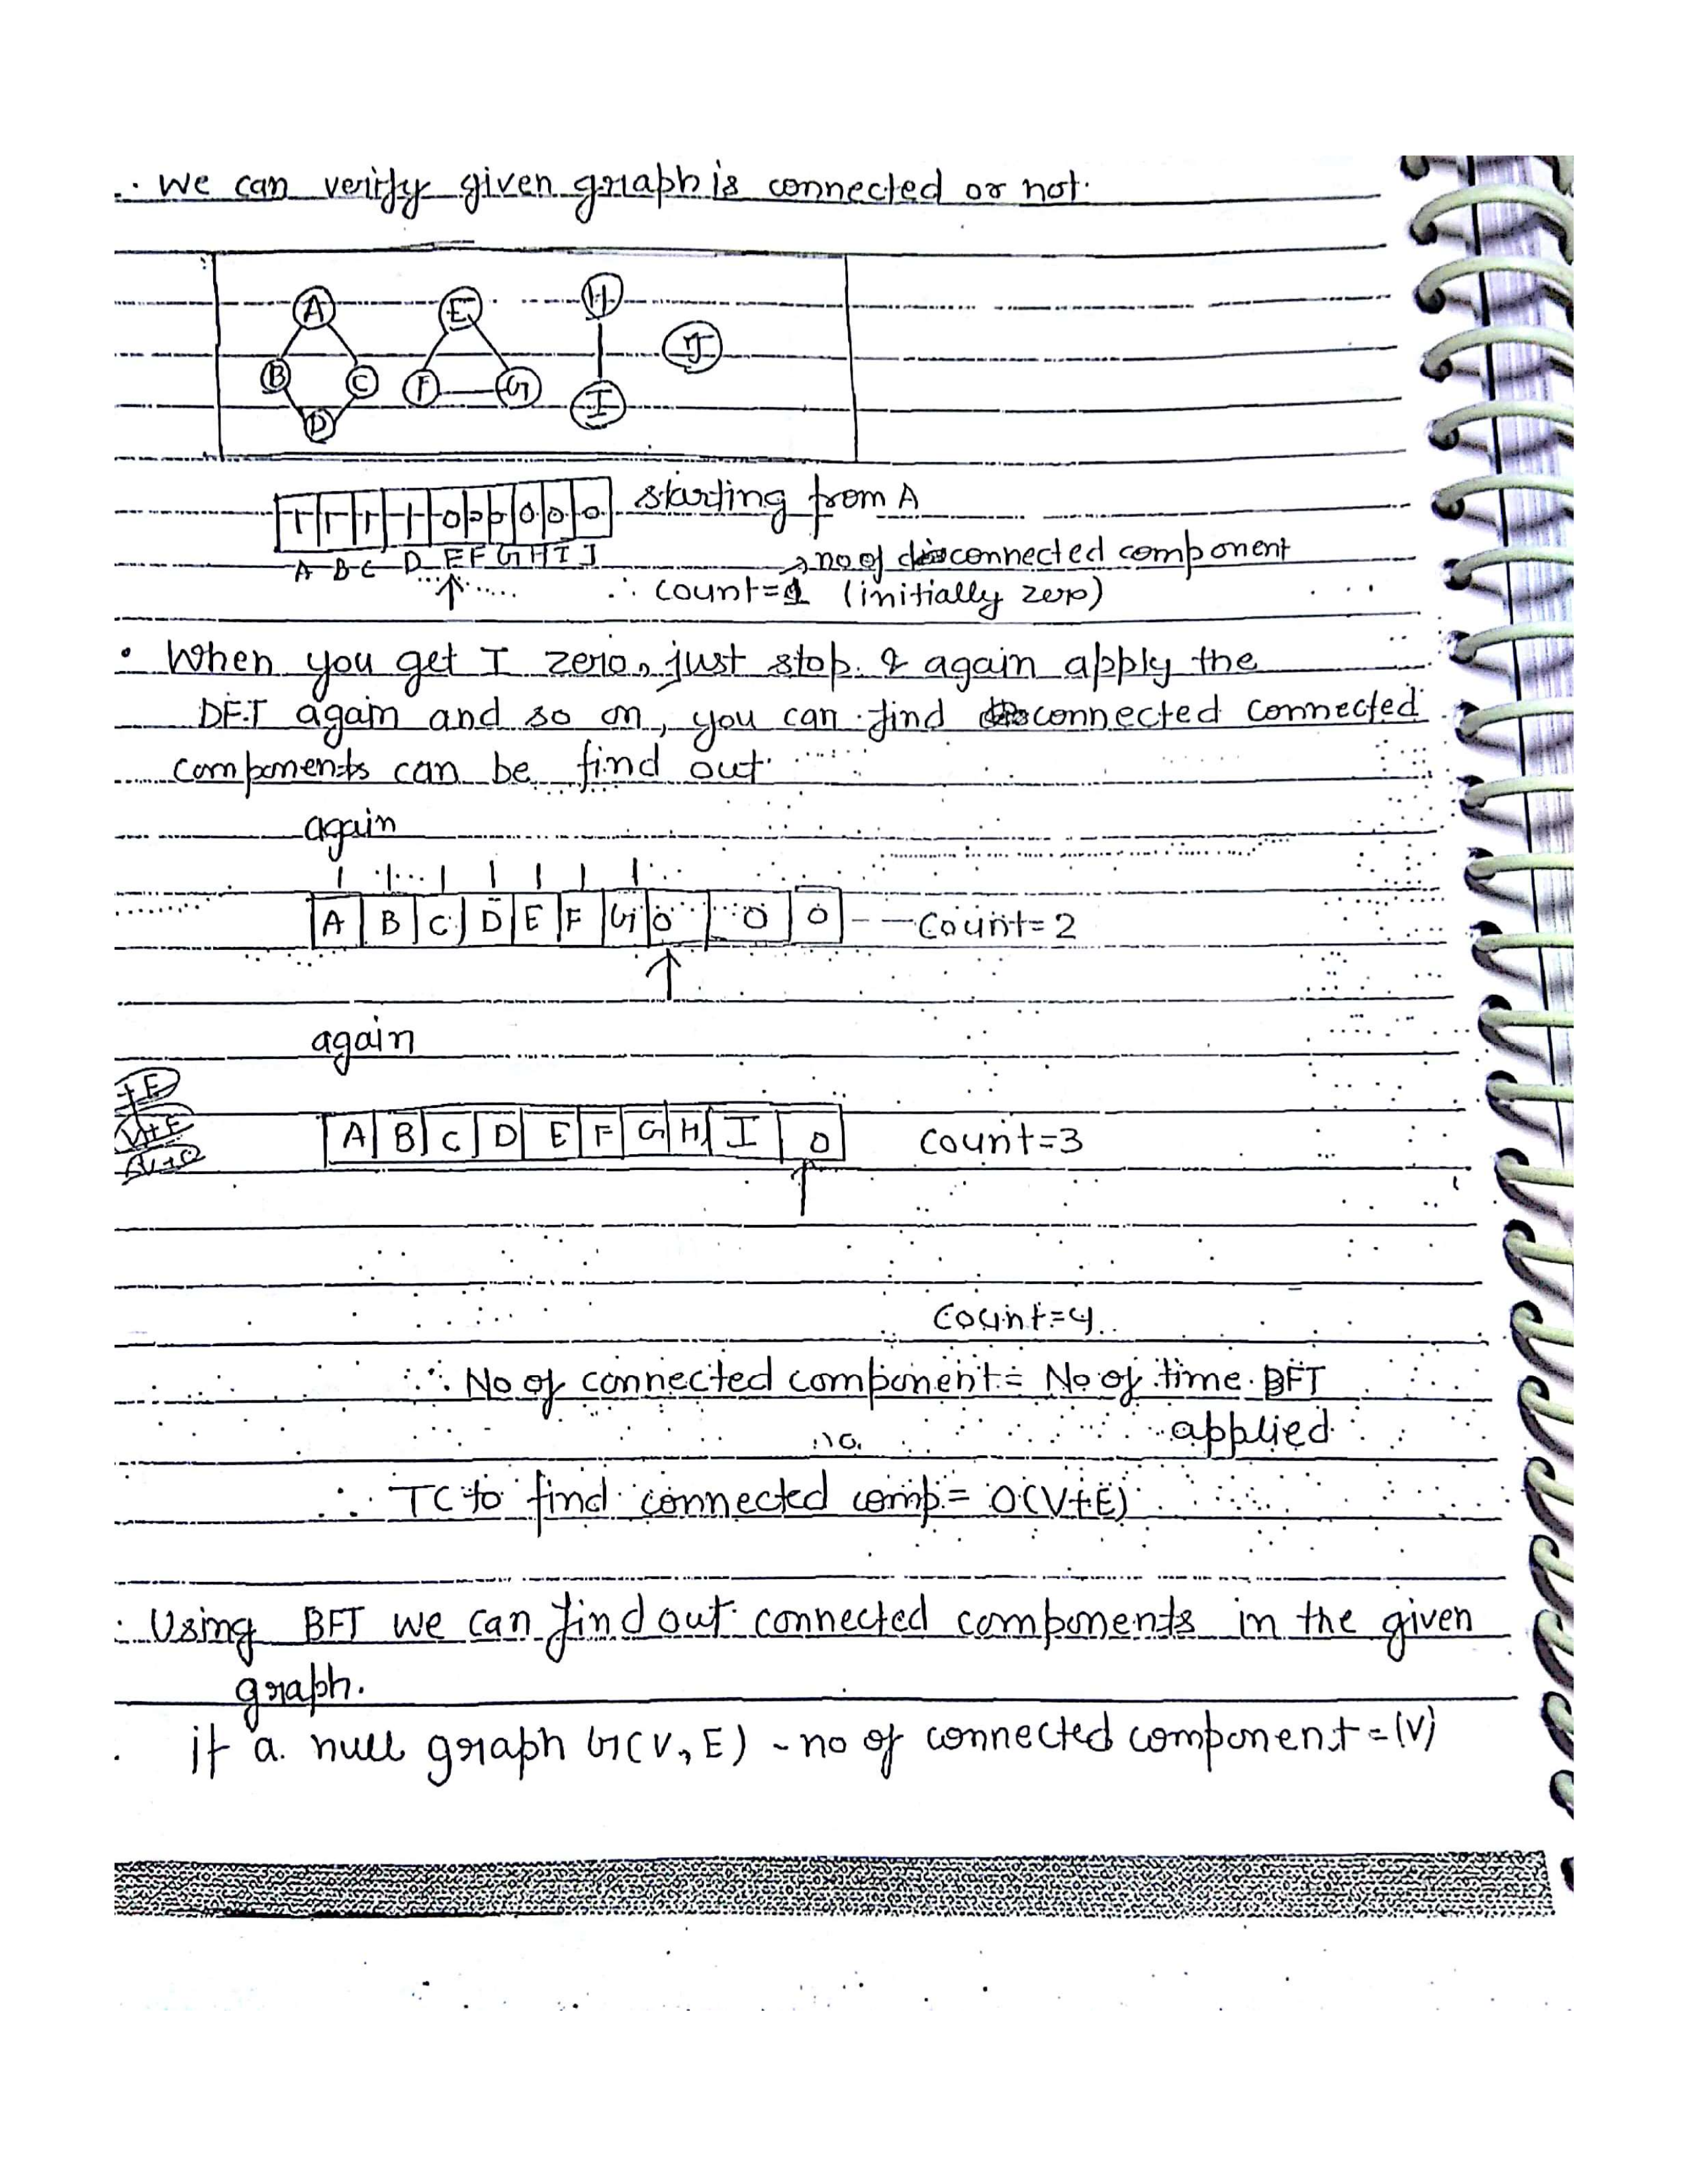 ∴ We can verify given graph is connected or not.
A E H
J
B C F G
I
D
1 1 1 1 0 0 0 0 0 0 starting from A
A B C D E F G H I J → no of connected component
∴ count=1 (initially zero)
• When you get I zero, just stop & again apply the
DFT again and so on, you can find connected connected
components can be find out
again
1 1 1 1 1 1 1
A B C D E F G 0 0 0 -- Count=2
again
+E
V+E
A B C D E F G H I 0 Count=3
Count=4
∴ No of connected component = No of time BFT
applied
∴ TC to find connected comp = O(V+E)
• Using BFT we can find out connected components in the given
graph.
• if a null graph G(V, E) - no of connected component = |V|